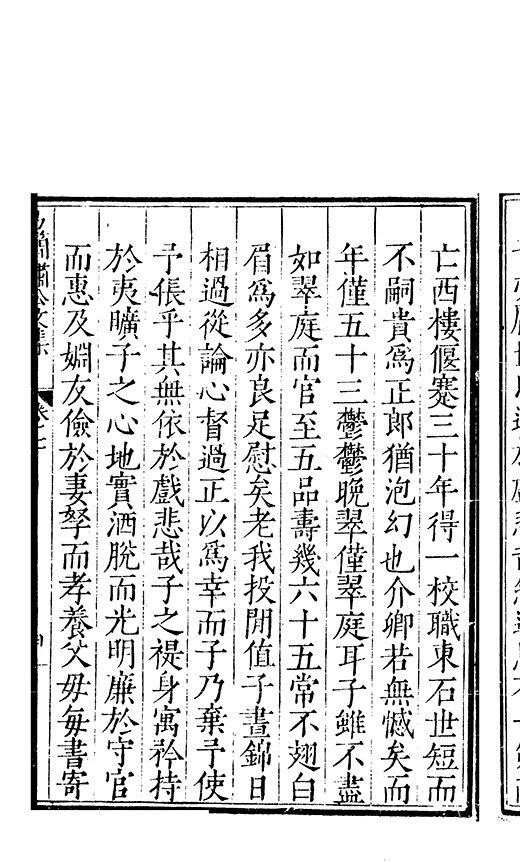 亡西樓偃蹇三十年得一校職東石世短而
不嗣貴爲正郎猶泡幻也介卿若無憾矣而
年僅五十三鬱鬱晚翠僅翠庭耳子雖不盡
如翠庭而官至五品壽幾六十五常不翅白
眉爲多亦良足慰矣老我投閒值子晝錦日
相過從論心督過正以爲幸而子乃棄予使
予倀乎其無依於戲悲哉子之禔身寓矜持
於夷曠子之心地實洒脫而光明廉於守官
而惠及婣友儉於妻孥而孝養父母每書寄
簡肅公文集
卷七